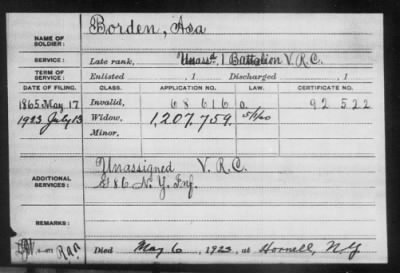 NAME OF SOLDIER: Borden, Asa
SERVICE: Late rank, Unassd, 1 Battalion V. R. C.
TERM OF SERVICE: Enlisted , 1 Discharged , 1
DATE OF FILING. CLASS. APPLICATION NO. LAW. CERTIFICATE NO.
1865 May 17 Invalid, 68 616 92 522
1923 July 13 Widow, 1,207,759.
Minor,
ADDITIONAL SERVICES: Unassigned V. R. C.
86 N. Y. Inf.
REMARKS:
Died May 6, 1923 at Hornell, N.Y.